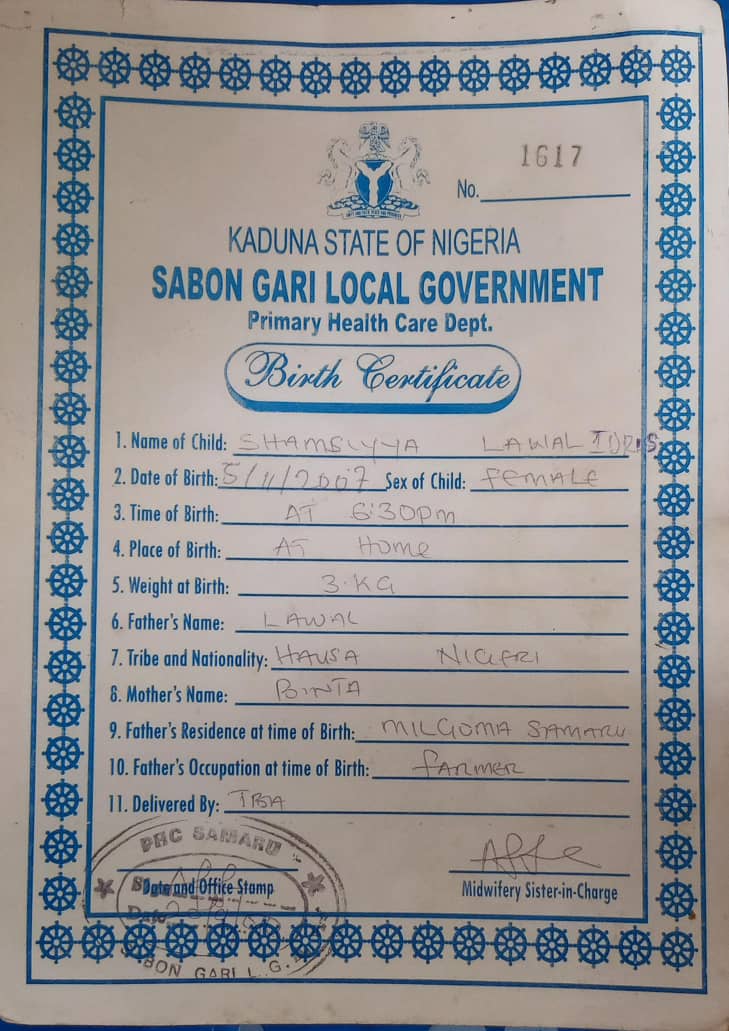 1617
No.
KADUNA STATE OF NIGERIA
SABON GARI LOCAL GOVERNMENT
Primary Health Care Dept.
Birth Certificate
1. Name of Child: SHAMSIYYA LAWAL IDRIS
2. Date of Birth: 5/11/2007 Sex of Child: FEMALE
3. Time of Birth: AT 6:30pm
4. Place of Birth: AT Home
5. Weight at Birth: 3.KG
6. Father's Name: LAWAL
7. Tribe and Nationality: HAUSA NIGERI
8. Mother's Name: BINTA
9. Father's Residence at time of Birth: MILGOMA SAMARU
10. Father's Occupation at time of Birth: FARMER
11. Delivered By: TBA
PHC SAMARU
Date and Office Stamp
Midwifery Sister-in-Charge
Date
SABON GARI L.G.